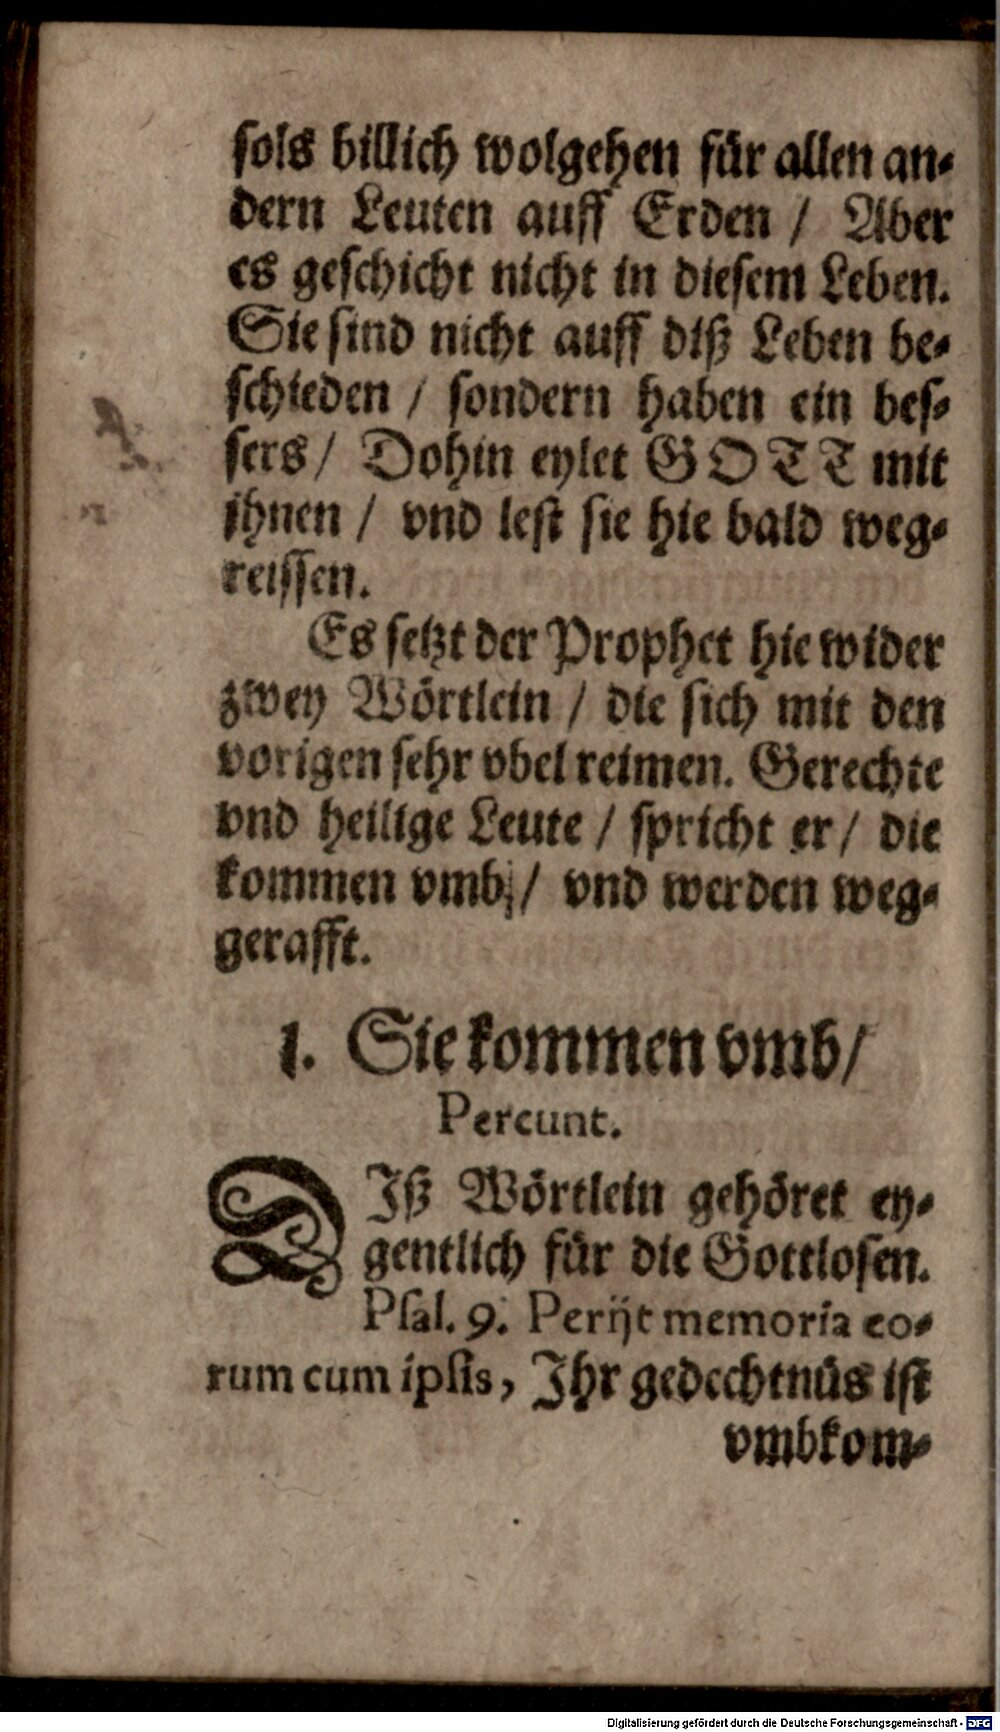 sols billich wolgehen für allen an-
dern Leuten auff Erden / Aber
es geschicht nicht in diesem Leben.
Sie sind nicht auff diß Leben be-
schieden / sondern haben ein bes-
sers / Dohin eylet GOTT mit
ihnen / vnd lest sie hie bald weg-
reissen.
Es setzt der Prophet hie wider
zwey Wörtlein / die sich mit den
vorigen sehr vbel reimen. Gerechte
vnd heilige Leute / spricht er / die
kommen vmb / vnd werden weg-
gerafft.
1. Sie kommen vmb /
Pereunt.
DIß Wörtlein gehöret ey-
gentlich für die Gottlosen.
Psal. 9. Perijt memoria eo-
rum cum ipsis, Ihr gedechtnüs ist
vmbkom-
Digitalisierung gefördert durch die Deutsche Forschungsgemeinschaft - DFG